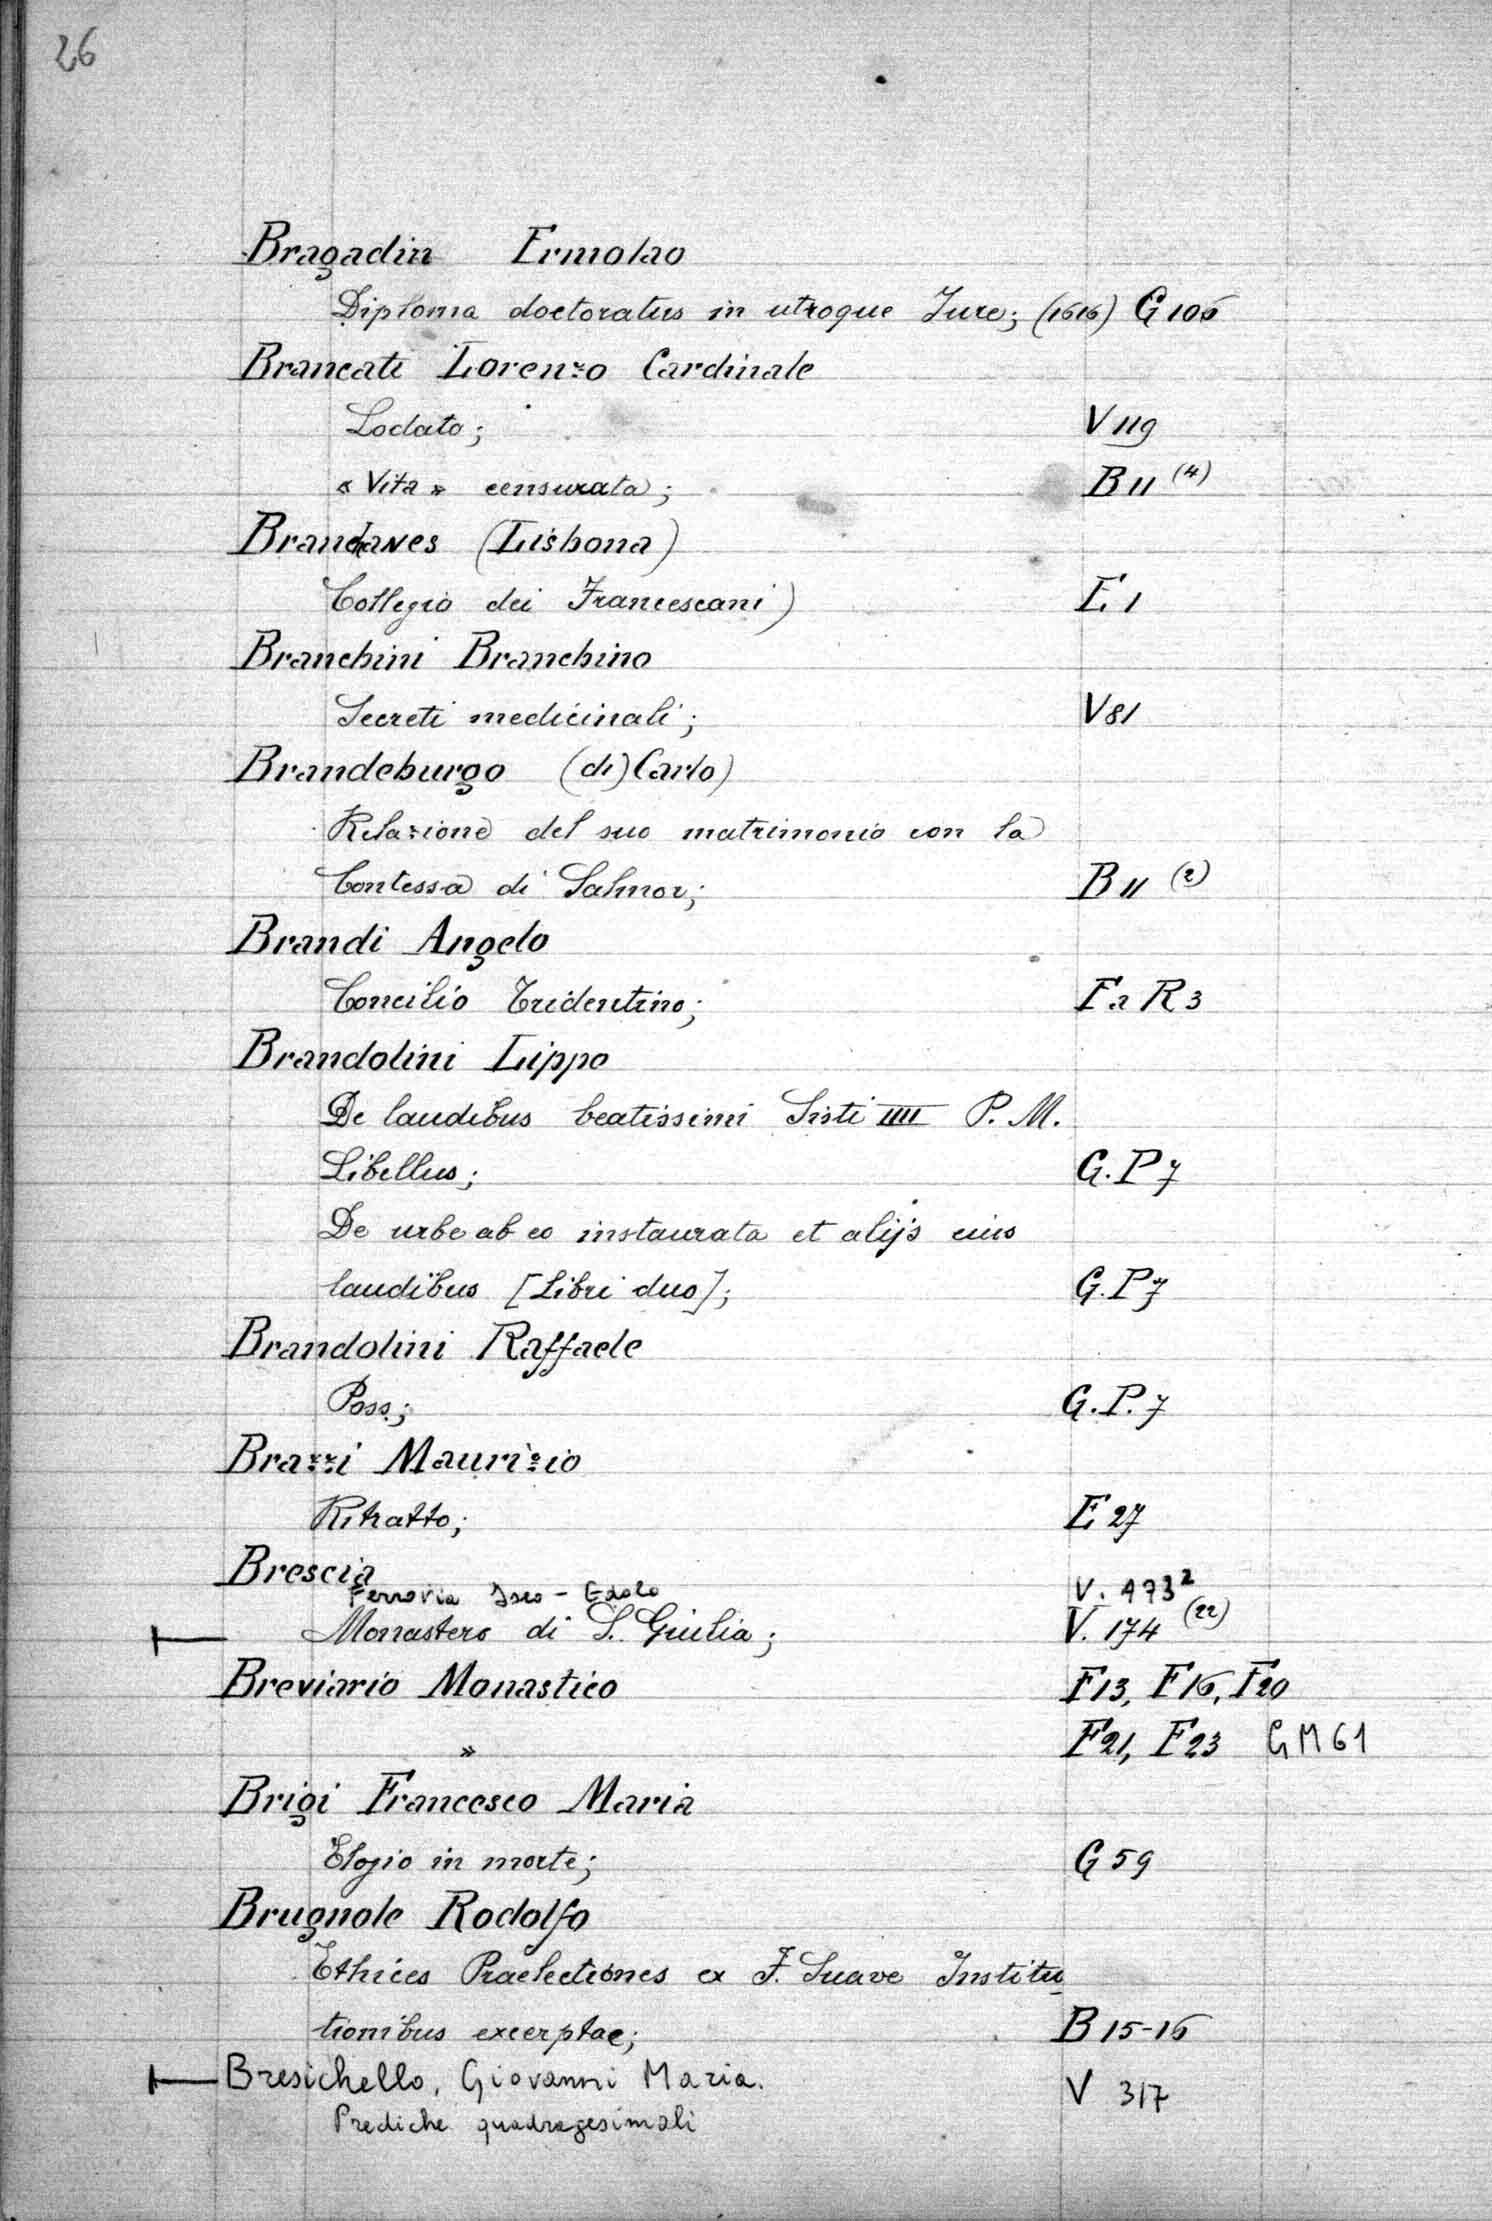 26
Bragadin Ermolao
Diploma doctoratus in utroque Jure; (1616) G 106
Brancati Lorenzo Cardinale
Lodato; V 119
« Vita » censurata; B 11 (4)
(Lisbona)
Collegio dei Francescani) E 1
Branchini Branchino
Secreti medicinali; V 81
Brandeburgo (di) Carlo)
Relazione del suo matrimonio con la
Contessa di Salmor; B 11 (2)
Brandi Angelo
Concilio Tridentino; Fa R 3
Brandolini Lippo
De laudibus beatissimi Sisti IIII P. M.
Libellus; G. P 7
De urbe ab eo instaurata et alijs eius
laudibus [Libri duo]; G. P 7
Brandolini Raffaele
Poss.; G. P. 7
Brazzi Maurizio
Ritratto; E 27
Brescia
Ferrovia Iseo - Edolo V. 473 2
Monastero di S. Giulia; V. 174 (22)
Breviario Monastico F 13, F 16, F 20
» F 21, F 23 GM 61
Brigi Francesco Maria
Elogio in morte; G 59
Brugnole Rodolfo
Ethices Praelectiones ex F. Suave Institu
tionibus excerptae; B 15-16
Bresichello, Giovanni Maria. V 317
Prediche quadragesimali